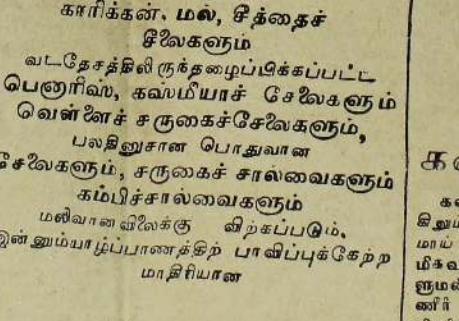 காரிக்கன். மல், சீத்தைச்
சீலைகளும்
வடதேசத்திலிருந்தழைப்பிக்கப்பட்ட
பெனாரிஸ், கஸ்மீயாச் சேலைகளும்
வெள்ளைச் சருகைச்சேலைகளும்,
பலதினுசான பொதுவான
சேலைகளும், சருகைச் சால்வைகளும்
கம்பிச்சால்வைகளும்
மலிவானவிலைக்கு விற்கப்படும்.
இன்னும்யாழ்ப்பாணத்திற் பாவிப்புக்கேற்ற
மாதிரியான
கிறும்
மாய்
மிகவ
ளுமல்
ணீர்